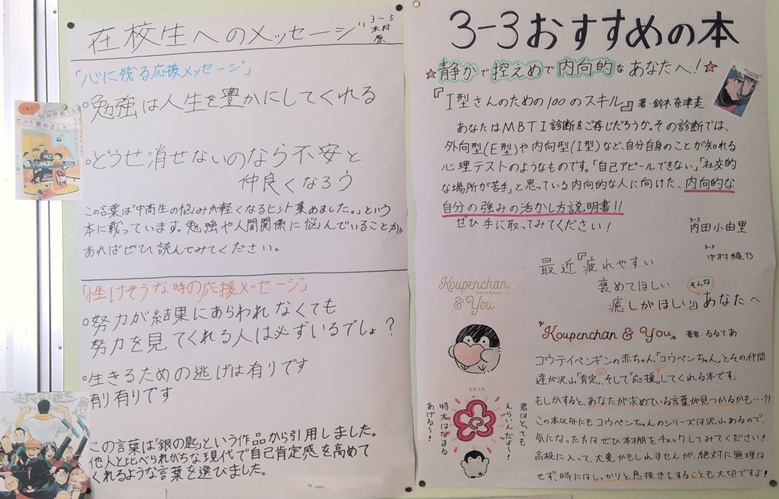 在校生へのメッセージ
3-5
木村
原
「心に残る応援メッセージ」
○勉強は人生を豊かにしてくれる
○どうせ消せないのなら不安と
仲良くなろう
この言葉は「中高生の悩みが軽くなるヒント集めました。」という
本に載っています。勉強や人間関係に悩んでいることが
あればぜひ読んでみてください。
「挫けそうな時の応援メッセージ」
○努力が結果にあらわれなくても
努力を見てくれる人は必ずいるでしょ?
○生きるための逃げは有りです
有り有りです
この言葉は「銀の匙」という作品から引用しました。
他人と比べられがちな現代で自己肯定感を高めて
くれるような言葉を選びました。
3-3おすすめの本
☆静かで控えめで内向的なあなたへ!☆
『I型さんのための100のスキル』著・鈴木奈津美
あなたはMBTI診断をご存じだろうか。その診断では、
外向型(E型)や内向型(I型)など、自分自身のことが知れる
心理テストのようなものです。「自己アピールできない」「社交的
な場所が苦手」と思っている内向的な人に向けた、内向的な
自分の強みの活かし方説明書!!
ぜひ手に取ってみてください!
3-3
内田小由里
3-3
中村綾乃
最近『疲れやすい
褒めてほしい
癒しがほしい』そんなあなたへ
Koupenchan
& You
"Koupenchan & You。
著者:るるてあ
コウテイペンギンの赤ちゃん「コウペンちゃん」とその仲間
達が沢山「肯定」、そして「応援」してくれる本です。
もしかすると、あなたが求めている言葉が見つかるかも…?!
この本以外にもコウペンちゃんのシリーズは沢山あるので、
気になった方はぜひ本棚をチェックしてみてください!
高校に入って、大変かもしれませんが、絶対に無理は
せず、時にはしっかりと息抜きをすることも大切ですよ!
君はとっても
えらいんだよ〜!
時だはなまる
あげる〜!